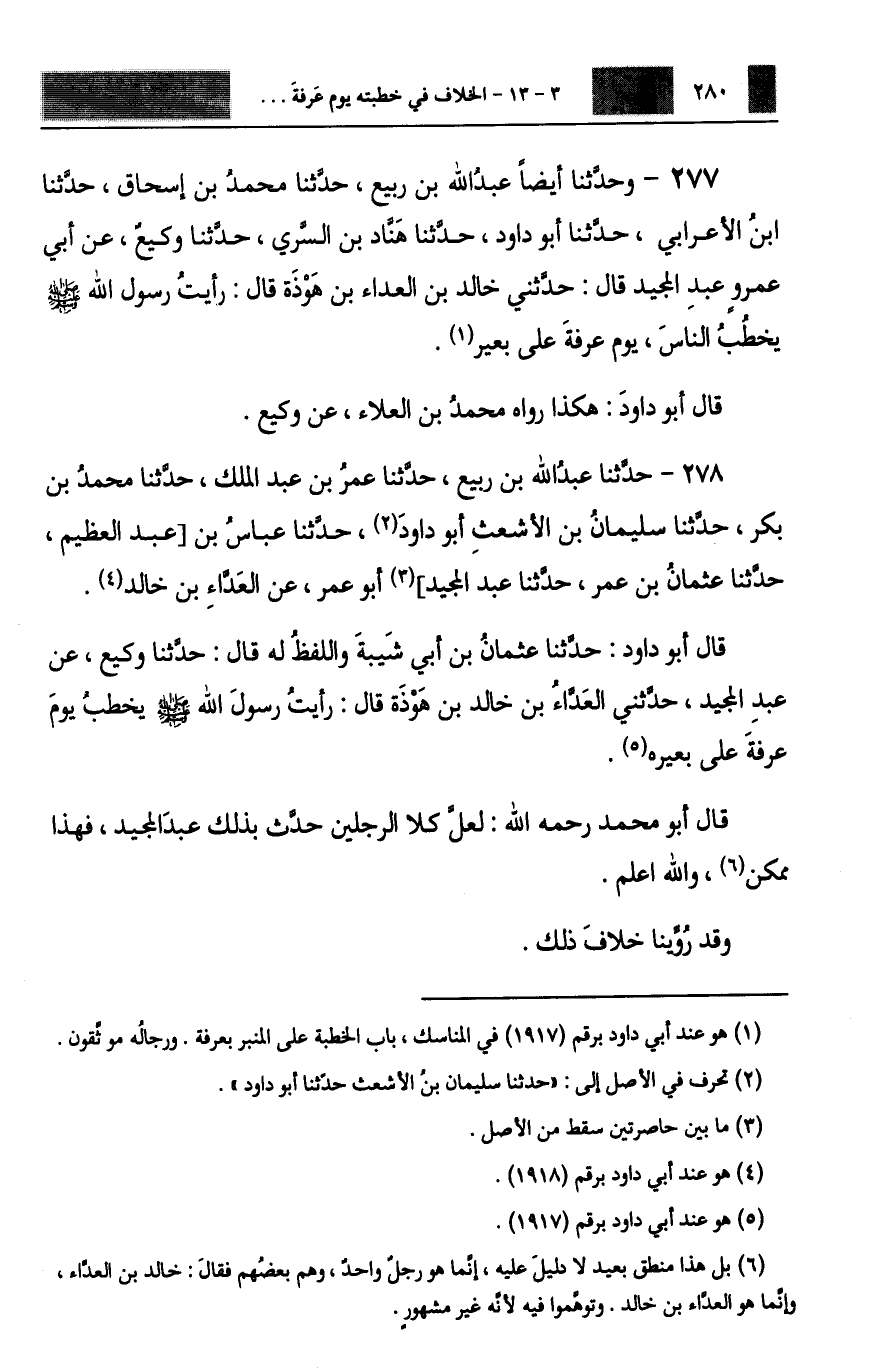 ٢٨٠ ٣ - ١٣ - الخلاف في خطبته يوم عَرفةَ ...
٢٧٧ - وحدَّثنا أيضاً عبدُالله بن ربيع ، حدَّثنا محمدُ بن إسحاق ، حدَّثنا
ابنُ الأعرابي ، حدَّثنا أبو داود ، حدَّثنا هَنَّاد بن السَّري ، حدَّثنا وكيعٌ ، عن أبي
عمروٍ عبدِ المجيد قال : حدَّثني خالد بن العداء بن هَوْذَة قال : رأيتُ رسول الله ﷺ
يخطُبُ الناسَ ، يوم عرفةَ على بعير(١) .
قال أبو داودَ : هكذا رواه محمدُ بن العلاء ، عن وكيع .
٢٧٨ - حدَّثنا عبدُالله بن ربيع ، حدَّثنا عمرُ بن عبد الملك ، حدَّثنا محمدُ بن
بكر ، حدَّثنا سليمانُ بن الأشعثِ أبو داودَ(٢) ، حدَّثنا عباسُ بن [عبد العظيم ،
حدَّثنا عثمانُ بن عمر ، حدَّثنا عبد المجيد](٣) أبو عمر ، عن العَدَّاءِ بن خالد(٤) .
قال أبو داود : حدَّثنا عثمانُ بن أبي شَيبةَ واللفظُ له قال : حدَّثنا وكيع ، عن
عبدِ المجيد ، حدَّثني العَدَّاءُ بن خالد بن هَوْذَة قال : رأيتُ رسولَ الله ﷺ يخطبُ يومَ
عرفةَ على بعيره(٥) .
قال أبو محمد رحمه الله : لعلَّ كلا الرجلين حدَّث بذلك عبدَالمجيد ، فهذا
ممكن(٦) ، والله اعلم .
وقد رُوِّينا خلافَ ذلك .
(١) هو عند أبي داود برقم (١٩١٧) في المناسك ، باب الخطبة على المنبر بعرفة . ورجالُه مو ثَّقون .
(٢) تحرف في الأصل إلى : «حدثنا سليمان بنُ الأشعث حدّثنا أبو داود » .
(٣) ما بين حاصرتين سقط من الأصل .
(٤) هو عند أبي داود برقم (١٩١٨) .
(٥) هو عند أبي داود برقم (١٩١٧) .
(٦) بل هذا منطق بعيد لا دليلَ عليه ، إنَّما هو رجلٌ واحدٌ ، وهم بعضُهم فقالَ : خالد بن العدَّاء ،
وإنَّما هو العدَّاء بن خالد . وتوهَّموا فيه لأنَّه غير مشهورٍ .